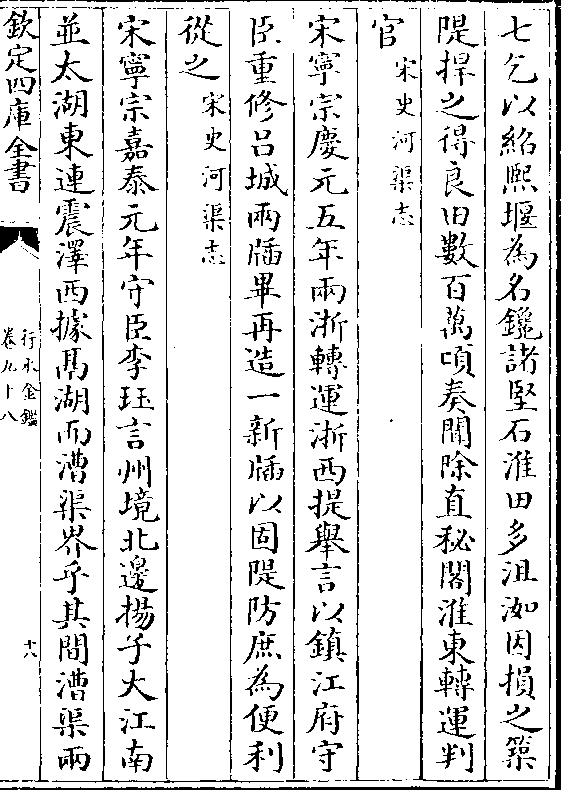 七乞以紹熙堰為名鑱諸堅石淮田多沮洳因損之築
隄捍之得良田數百萬頃奏聞除直秘閣淮東轉運判
官宋史河渠志
宋寧宗慶元五年兩浙轉運浙西提舉言以鎮江府守
臣重修吕城兩牐畢再造一新牐以固隄防庶為便利
從之宋史河渠志
宋寧宗嘉泰元年守臣李珏言州境北邊揚子大江南
並太湖東連震澤西據鬲湖而漕渠界乎其間漕渠兩
欽定四庫全書
行水金鑑
卷九十八
十八